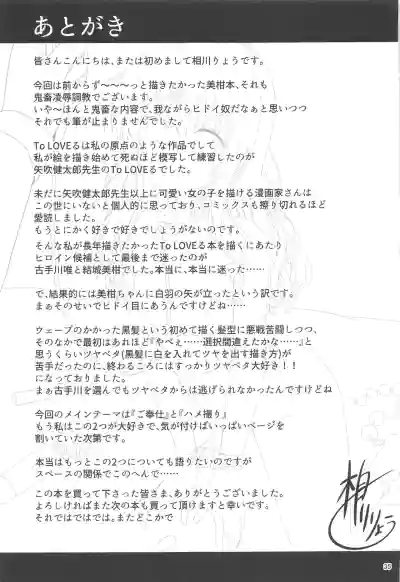 あとがき
皆さんこんにちは、または初めまして相川りょうです。
今回は前からず〜〜〜っと描きたかった美柑本、それも
鬼畜凌辱調教でございます。
いや〜ほんと鬼畜な内容で、我ながらヒドイ奴だなぁと思いつつ
それでも筆が止まりませんでした。
To LOVEるは私の原点のような作品でして
私が絵を描き始めて死ぬほど模写して練習したのが
矢吹健太郎先生のTo LOVEるでした。
未だに矢吹健太郎先生以上に可愛い女の子を描ける漫画家さんは
この世にいないと個人的に思っており、コミックスも擦り切れるほど
愛読しました。
もうとにかく好きで好きでしょうがないのです。
そんな私が長年描きたかったTo LOVEる本を描くにあたり
ヒロイン候補として最後まで迷ったのが
古手川唯と結城美柑でした。本当に、本当に迷った……
で、結果的には美柑ちゃんに白羽の矢が立ったという訳です。
まぁそのせいでヒドイ目にあうんですけどね…
ウェーブのかかった黒髪という初めて描く髪型に悪戦苦闘しつつ、
そのなかで最初はあれほど『やべぇ……選択間違えたかな…』と
思うくらいツヤベタ(黒髪に白を入れてツヤを出す描き方)が
苦手だったのに、終わるころにはすっかりツヤベタ大好き！！
になっておりました。
まぁ古手川を選んでもツヤベタからは逃げられなかったんですけどね
今回のメインテーマは『ご奉仕』と『ハメ撮り』
もう私はこの2つが大好きで、気が付けばいっぱいページを
割いていた次第です。
本当はもっとこの2つについても語りたいのですが
スペースの関係でこのへんで……
この本を買って下さった皆さま、ありがとうございました。
よろしければまた次の本も買って頂けますと幸いです。
それではではでは。またどこかで
相川りょう
35